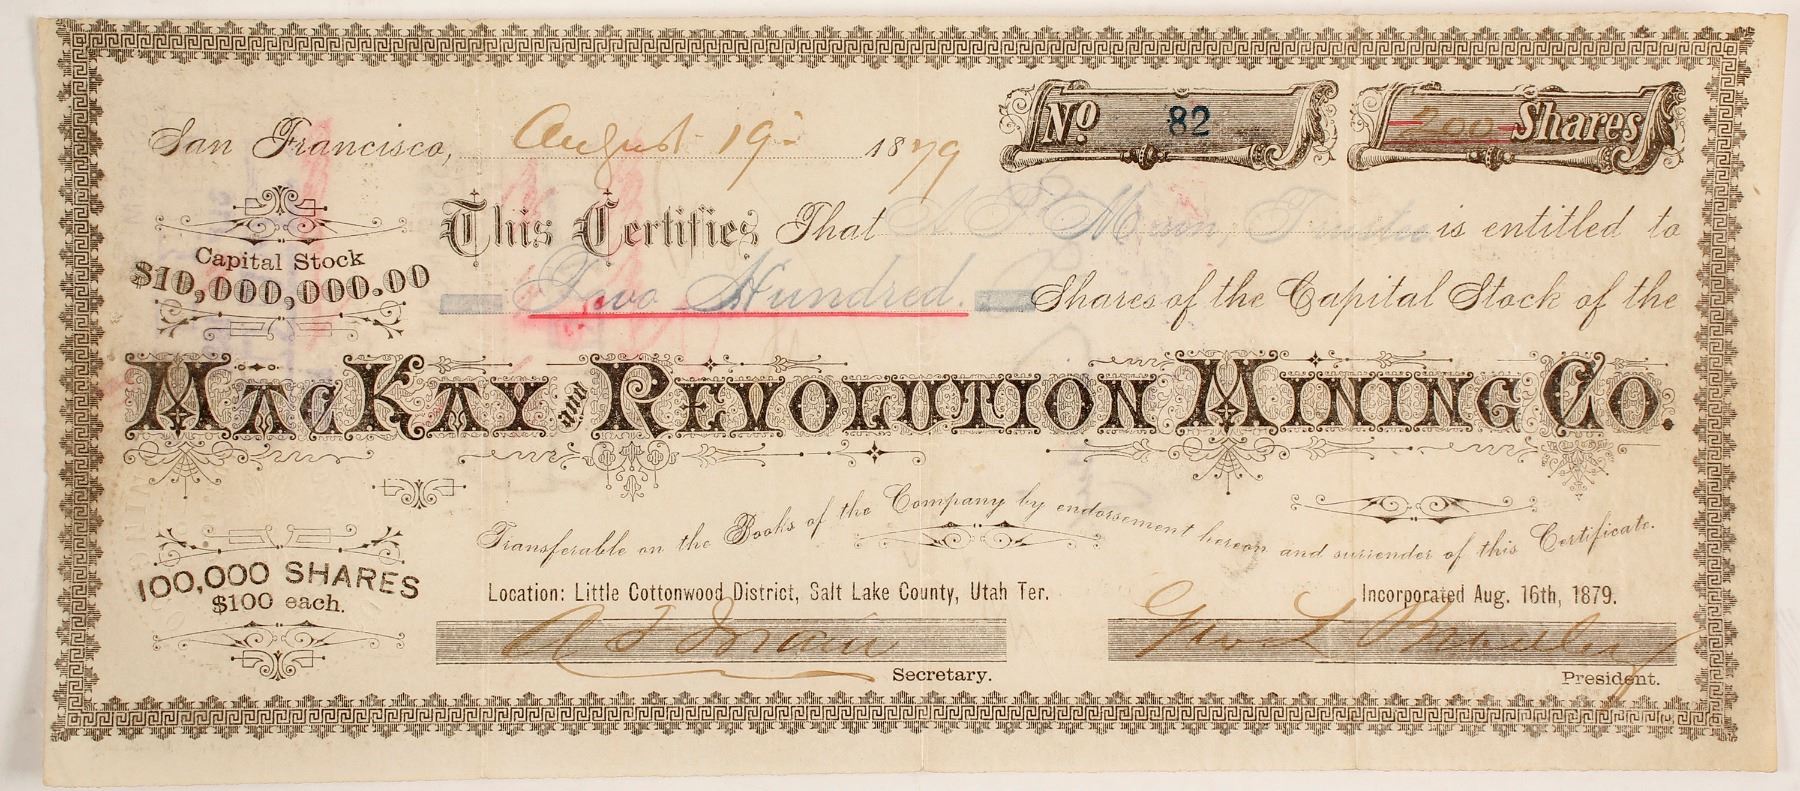 No 82
200 Shares
San Francisco, August 19th 1879
This Certifies That A F Main, Trustee is entitled to
Two Hundred. Shares of the Capital Stock of the
Capital Stock
$10,000,000.00
MacKay and Revolution Mining Co.
Transferable on the Books of the Company by endorsement hereon and surrender of this Certificate.
100,000 SHARES
$100 each.
Location: Little Cottonwood District, Salt Lake County, Utah Ter.
Incorporated Aug. 16th, 1879.
A F Main
Secretary.
Geo L
President.